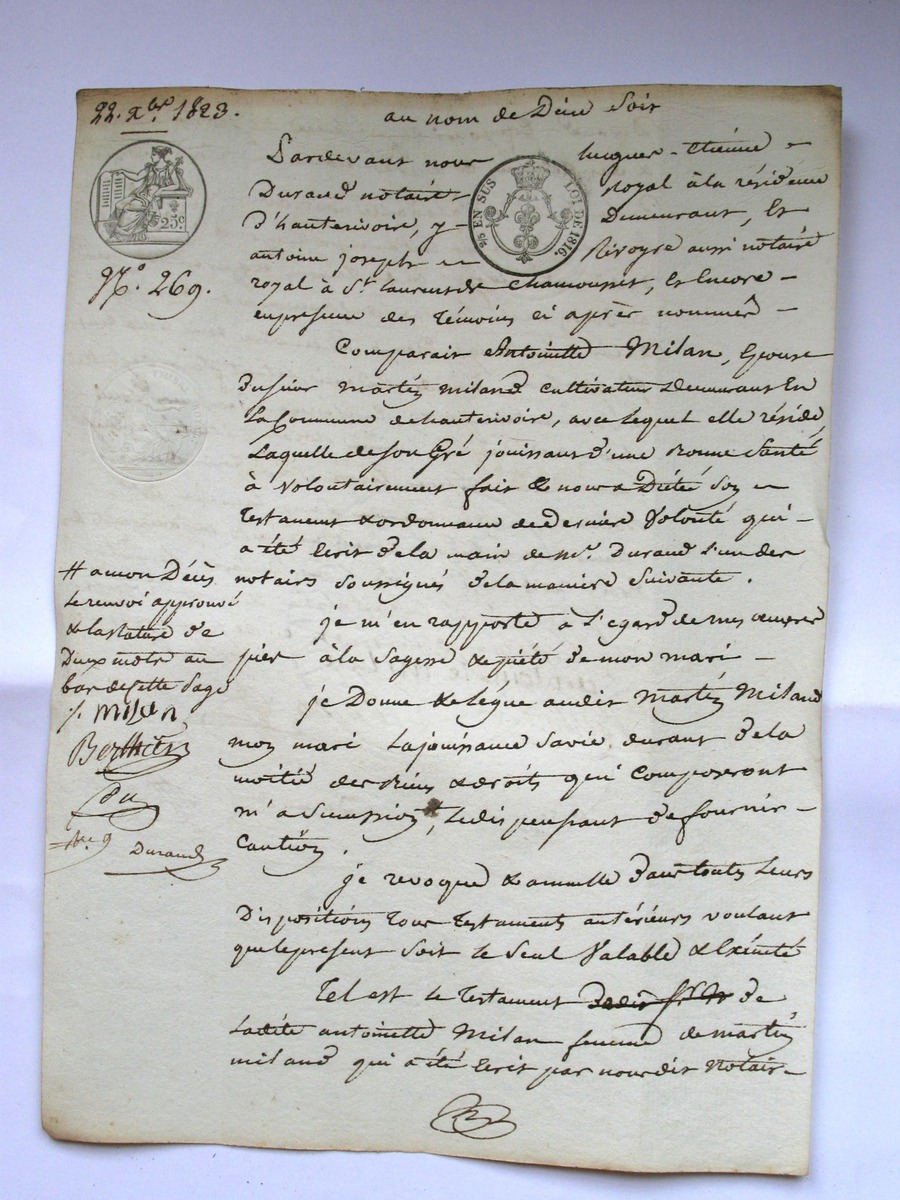 22. xbre 1823.
au nom de Dieu soit
Pardevant nous hugues-Etienne
Durand notaire royal à la résidence
D'hauterivoire, y Demeurant, Et
antoine joseph Rivoyre aussi notaire
royal à St. Laurent de Chamousset, Et Encore
en presence des Témoins ci après nommés
Comparait Antoinette Milan, Epouse
du sieur martin miland cultivateur Demeurant En
La Commune de hauterivoire, avec Lequel elle réside
Laquelle de son Gré jouissant d'une Bonne Santé
à volontairement fait & nous a Dicté son
Testament & ordonnance de Derniere Volonté qui
a été Ecrit de la main de Me. Durand l'un des
notaires soussignés de la maniere suivante.
je m'en rapporte à L'egard de mes œuvres
pies à la sagesse & piété de mon mari
je Donne & Légue audit martin Miland
mon mari La jouissance sa vie durant de la
moitié des Biens & droits qui composeront
m'a Succession, Le dispensant de fournir
Caution.
je revoque & annulle dans toutes Leurs
Dispositions tous Testaments antérieurs voulant
que le present soit le seul Valable & Exécuté
Tel est le Testament de
Ladite antoinette Milan femme de martin
miland qui a été Ecrit par nous dit Notaire
25c.
2/5 EN SUS LOI DE 1816.
No. 269.
# a mon Décès
Le renvoi approuvé
& la rature de
Deux mots au
bas de cette page
Milan
Berthier
Durand